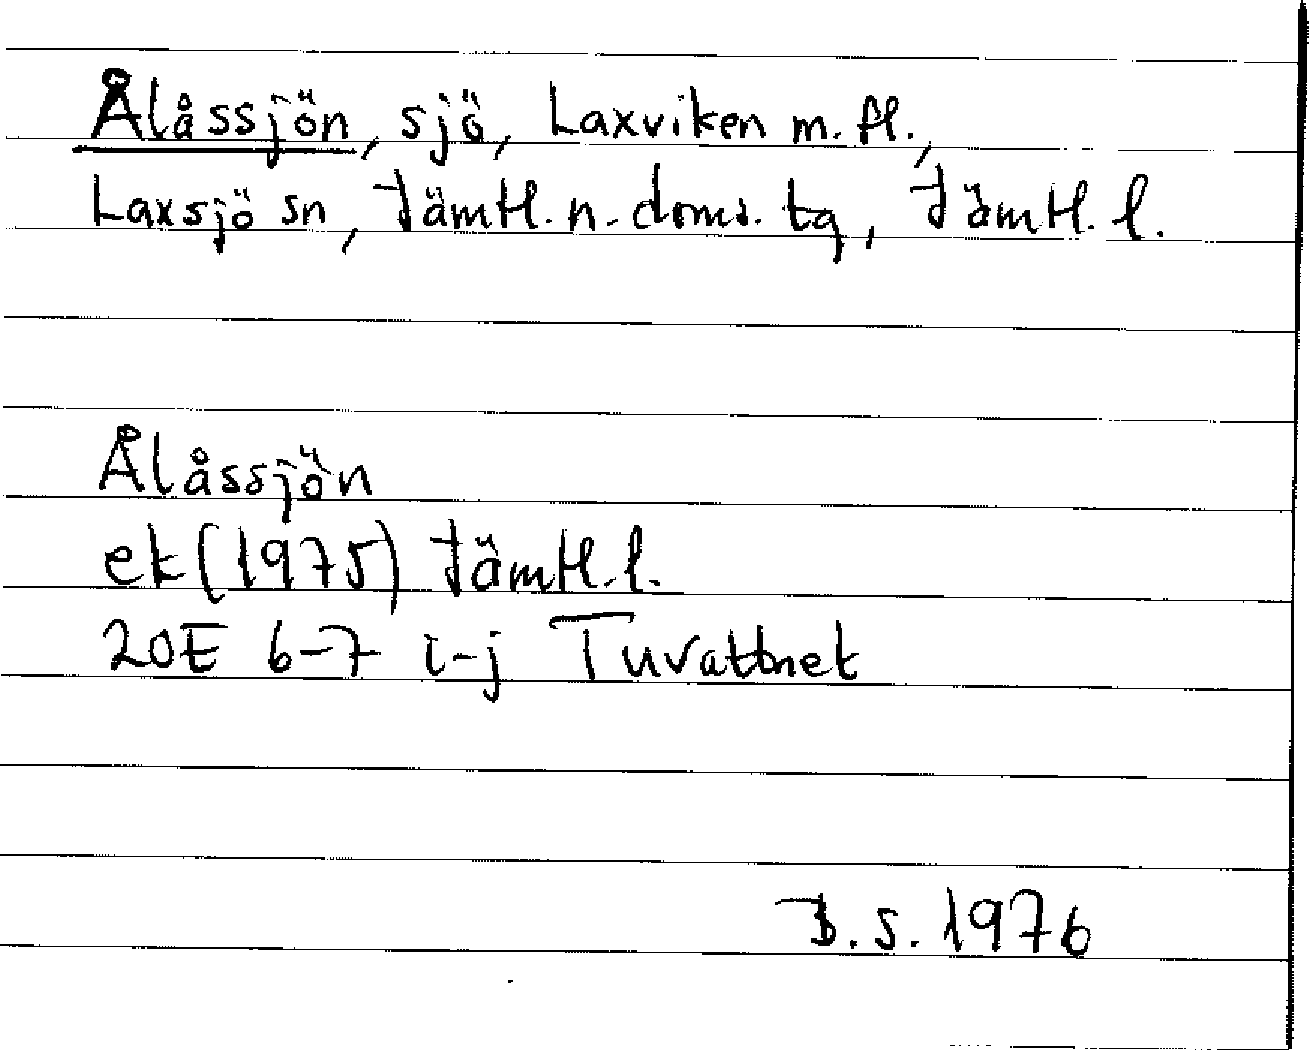 Ålåssjön, sjö, Laxviken m. fl.,
Laxsjö sn, Jämtl. n. doms. tg, Jämtl. l.
Ålåssjön
ek (1975) Jämtl. l.
20E 6-7 i-j Tuvattnet
B. S. 1976